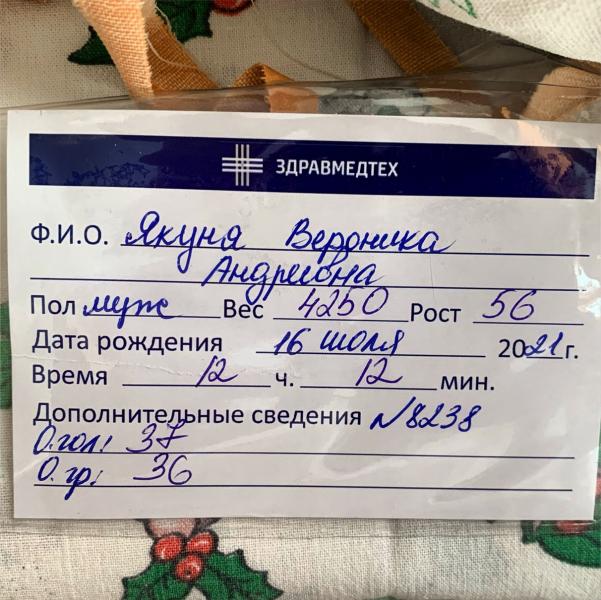 ЗДРАВМЕДТЕХ
Ф.И.О. Якуня Вероника
Андреевна
Пол муж Вес 4250 Рост 56
Дата рождения 16 июля 2021 г.
Время 12 ч. 12 мин.
Дополнительные сведения №8238
О.гол: 37
О.гр: 36